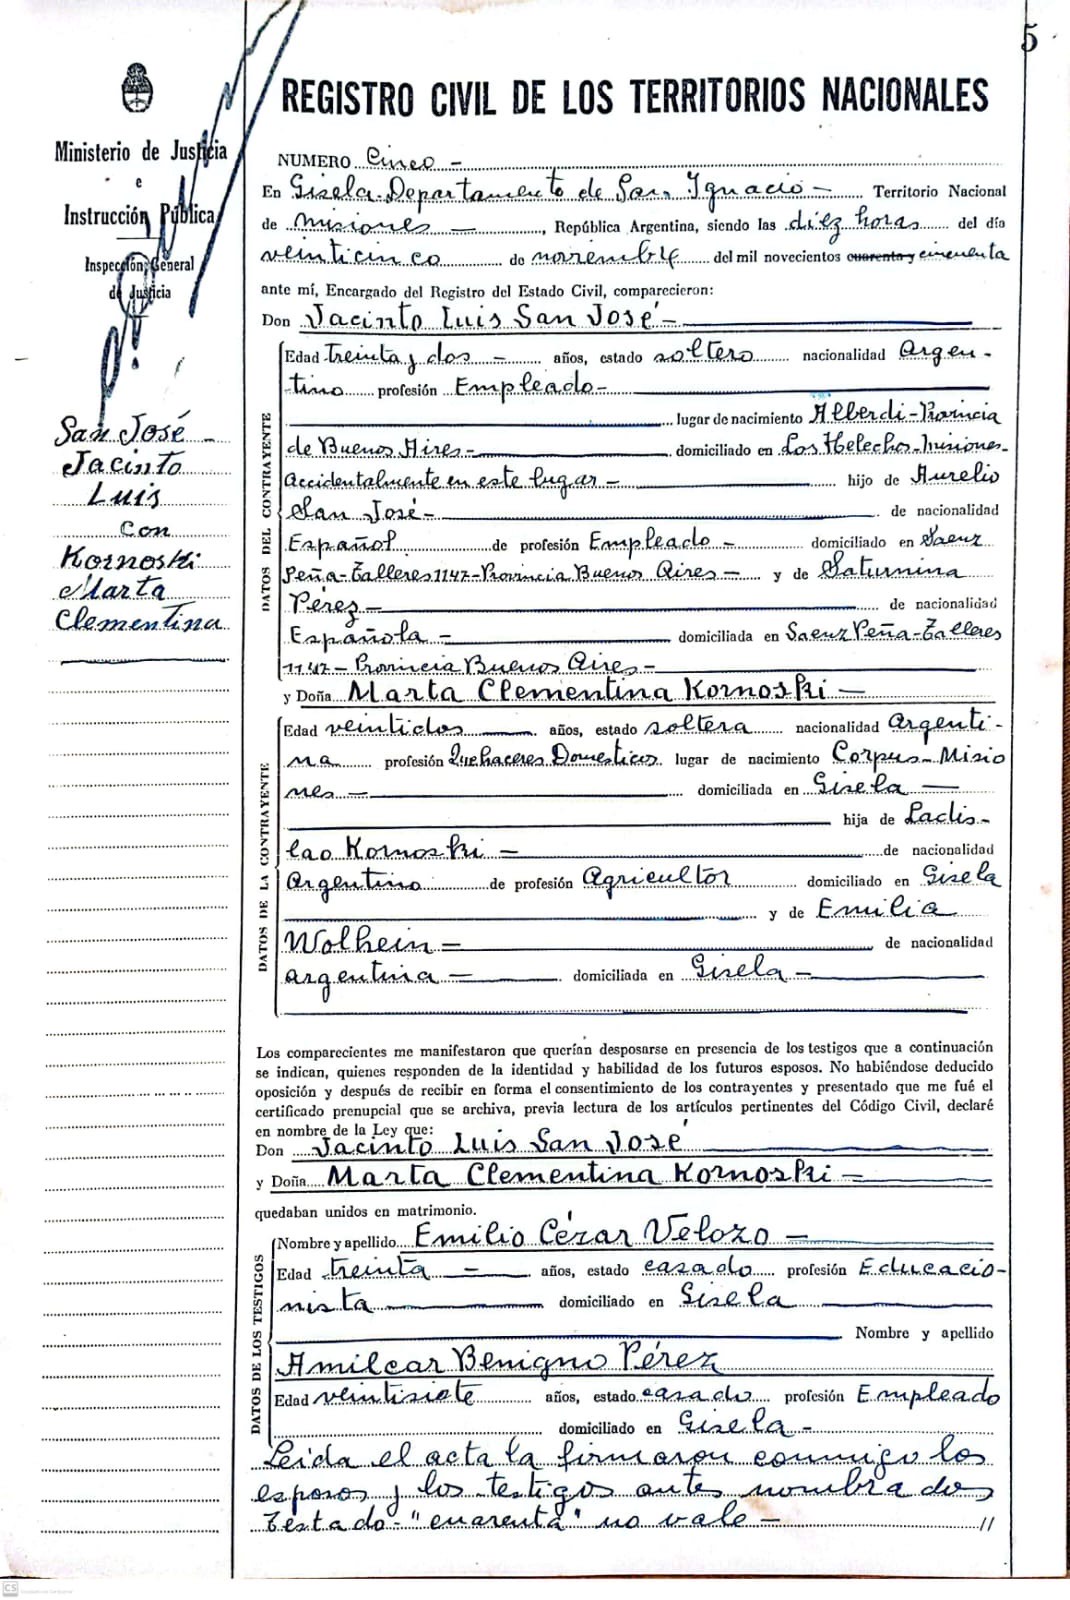 5
REGISTRO CIVIL DE LOS TERRITORIOS NACIONALES
Ministerio de Justicia
e
Instrucción Pública
Inspección General
de Justicia
San José
Jacinto
Luis
con
Kornoski
Marta
Clementina
NUMERO Cinco -
En Gisela Departamento de San Ignacio - Territorio Nacional
de misiones -, República Argentina, siendo las diez horas del día
veinticinco de noviembre del mil novecientos cuarenta y cincuenta
ante mí, Encargado del Registro del Estado Civil, comparecieron:
Don Jacinto Luis San José -
DATOS DEL CONTRAYENTE
Edad treinta y dos - años, estado soltero nacionalidad Argen-
tino profesión Empleado -
lugar de nacimiento Alberdi - Provincia
de Buenos Aires - domiciliado en Los Helechos - misiones -
Accidentalmente en este lugar - hijo de Aurelio
San José - de nacionalidad
Español de profesión Empleado - domiciliado en Saenz
Peña - Talleres 1147 - Provincia Buenos Aires - y de Saturnina
Pérez - de nacionalidad
Española - domiciliada en Saenz Peña - Talleres
1147 - Provincia Buenos Aires -
y Doña Marta Clementina Kornoski -
DATOS DE LA CONTRAYENTE
Edad veintidos años, estado soltera nacionalidad Argenti-
na profesión Quehaceres Domesticos lugar de nacimiento Corpus - Misio
nes - domiciliada en Gisela -
hija de Ladis-
lao Kornoski - de nacionalidad
Argentino de profesión Agricultor domiciliado en Gisela
y de Emilia
Wolhein - de nacionalidad
argentina - domiciliada en Gisela -
Los comparecientes me manifestaron que querían desposarse en presencia de los testigos que a continuación
se indican, quienes responden de la identidad y habilidad de los futuros esposos. No habiéndose deducido
oposición y después de recibir en forma el consentimiento de los contrayentes y presentado que me fué el
certificado prenupcial que se archiva, previa lectura de los artículos pertinentes del Código Civil, declaré
en nombre de la Ley que:
Don Jacinto Luis San José
y Doña Marta Clementina Kornoski -
quedaban unidos en matrimonio.
DATOS DE LOS TESTIGOS
Nombre y apellido Emilio Cézar Velozo -
Edad treinta - años, estado casado profesión Educacio-
nista domiciliado en Gisela
Nombre y apellido
Amilcar Benigno Pérez
Edad veintisiete años, estado casado profesión Empleado
domiciliado en Gisela -
Leida el acta la firmaron conmigo los
esposos y los testigos antes nombrados
Testado - "cuarenta" no vale - //
CS